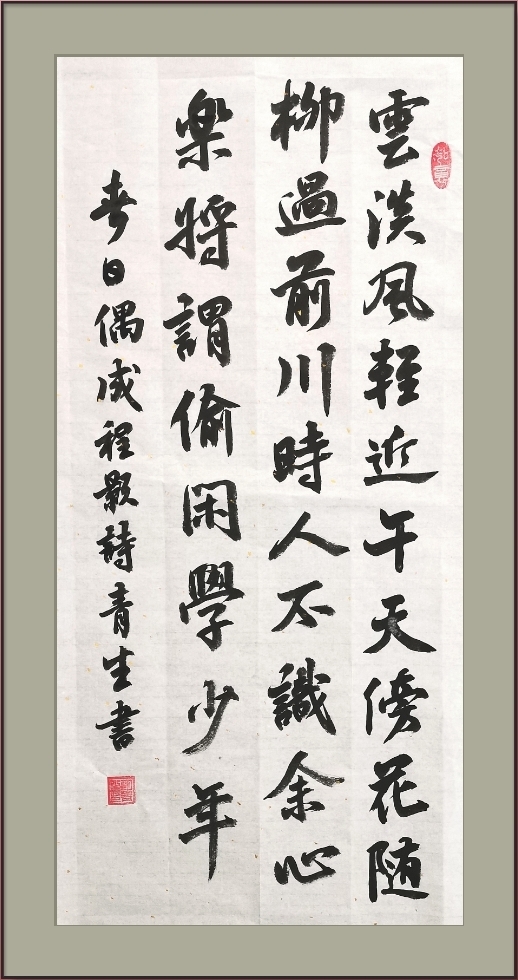 雲淡風輕近午天傍花随
柳過前川時人不識余心
楽將謂偷闲學少年
春日偶成程颢詩青生書